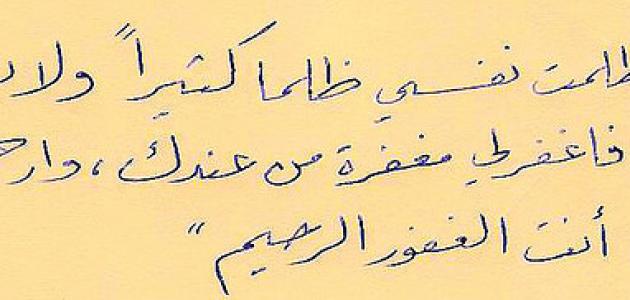 ظلمت نفسي ظلما كثيراً ولا
فاغفر لي مغفرة من عندك، وار
أنت الغفور الرحيم "